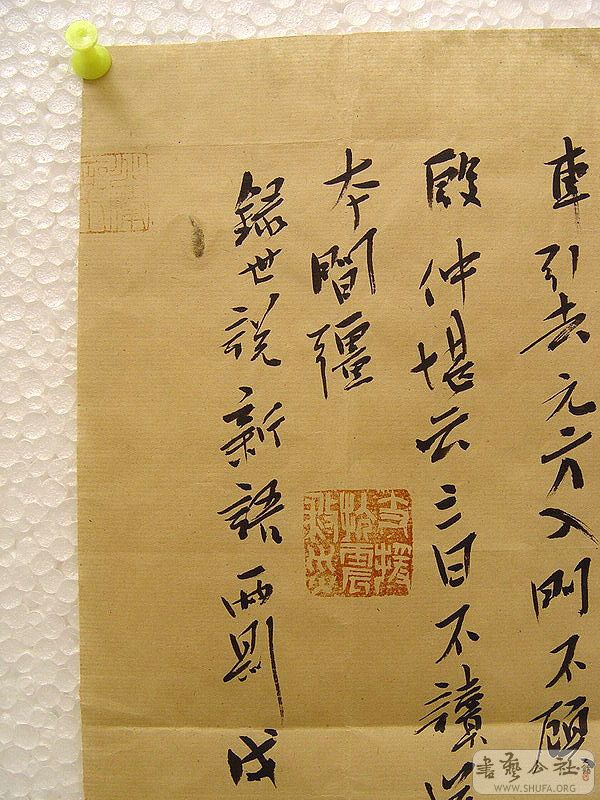 車引去元方入門不顧
殷仲堪云三日不讀道
本間彊
録世説新語兩則戊
書藝公社
WWW.SHUFA.ORG